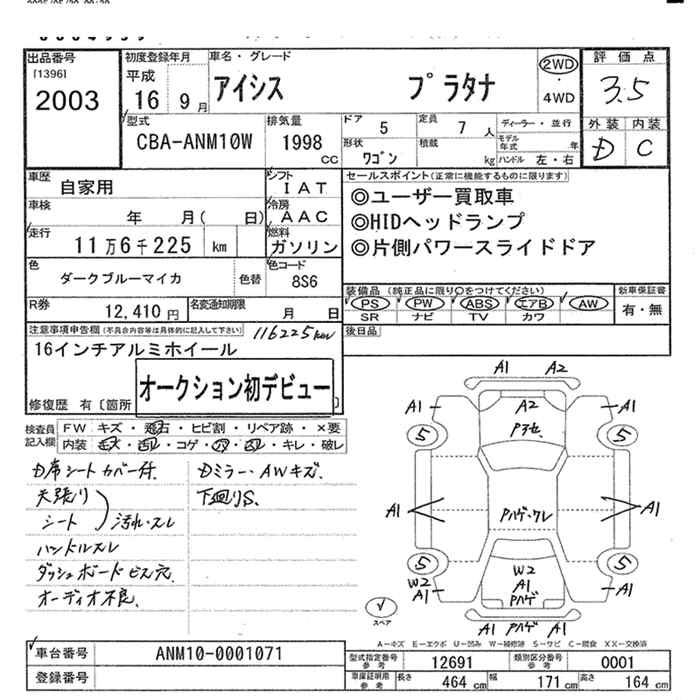 出品番号
[1396]
2003
初度登録年月
平成
16 9 月
車名・グレード
アイシス プラタナ
2WD
・
4WD
評価点
3.5
外装 内装
D C
型式
CBA-ANM10W
排気量
1998
cc
ドア 5
定員 7 人
形状 ワゴン
積載 kg
ディーラー・並行
モデル年式 年
ハンドル 左・右
車歴 自家用
シフト IAT
車検 年 月( 日)
冷房 AAC
走行 11万6千225 km
燃料 ガソリン
色 ダークブルーマイカ
色替
色コード 8S6
R券 12,410 円
名変通知期限 月 日
セールスポイント(正常に機能するものに限ります)
◎ユーザー買取車
◎HIDヘッドランプ
◎片側パワースライドドア
装備品(純正品に限り○をつけてください)
PS PW ABS エアB AW
SR ナビ TV カワ
新車保証書
有・無
後日品
注意事項申告欄(不具合内容等は具体的に記入して下さい)
116225km
16インチアルミホイール
オークション初デビュー
修復歴 有〔箇所
検査員記入欄
FW キズ・飛石・ヒビ割・リペア跡・×要
内装 ・コゲ・ ・キレ・破レ
D席シートカバー付.
天張り
シート
汚れ・スレ
ハンドルスレ
ダッシュボードビス穴
オーディオ不良.
Dミラー・AWキズ.
下廻りS.
A1 A2
A1 A2 A1
Pハゲ・ワレ
5 5
A1 A1
5 5
W2
A1
W2
A1
Pハゲ
A1
A1 Pハゲ A1
スペア
A－キズ E－エクボ U－凹み W－補修跡 S－サビ C－腐食 XX－交換済
車台番号 ANM10-0001071
登録番号
型式指定番号 参考 12691
類別区分番号 参考 0001
車庫証明用 参考 長さ 464 cm 幅 171 cm 高さ 164 cm